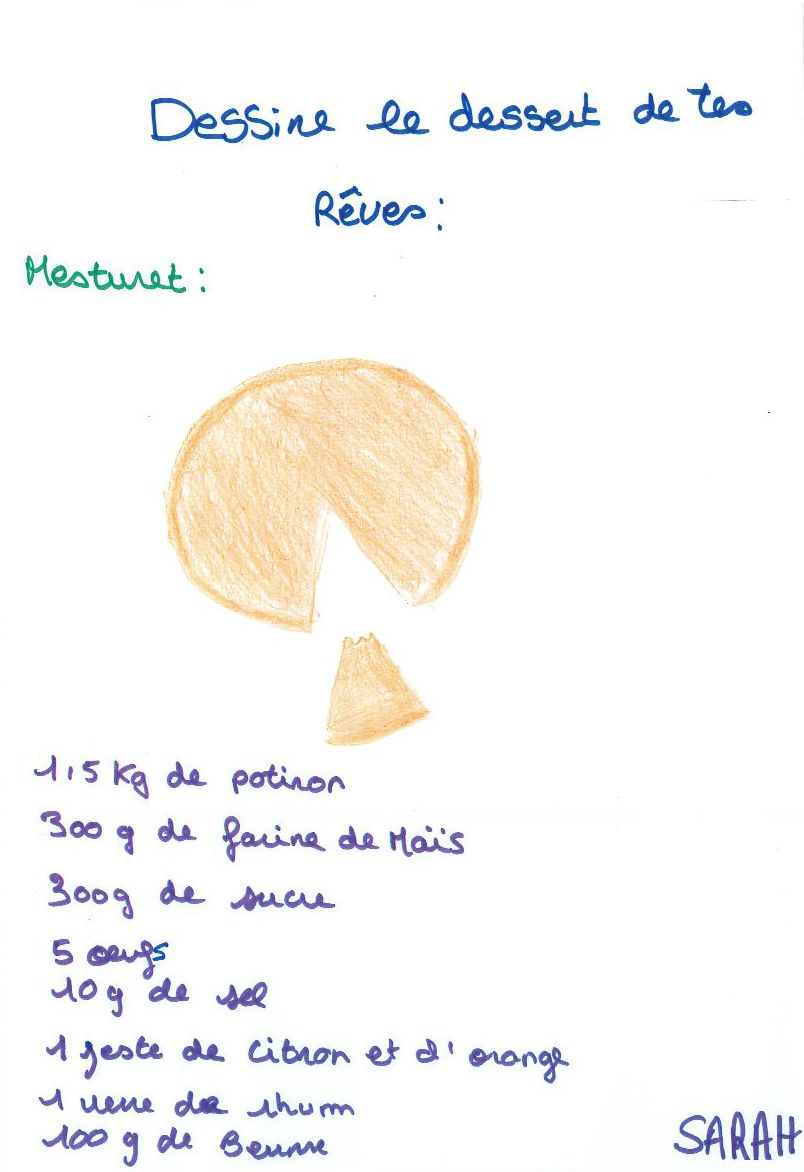 Dessine le dessert de tes
Rêves:
Mesturet:
1,5 Kg de potiron
300 g de farine de Maïs
300g de sucre
5 oeufs
10 g de sel
1 zeste de citron et d'orange
1 verre de rhum
100 g de Beurre
SARAH